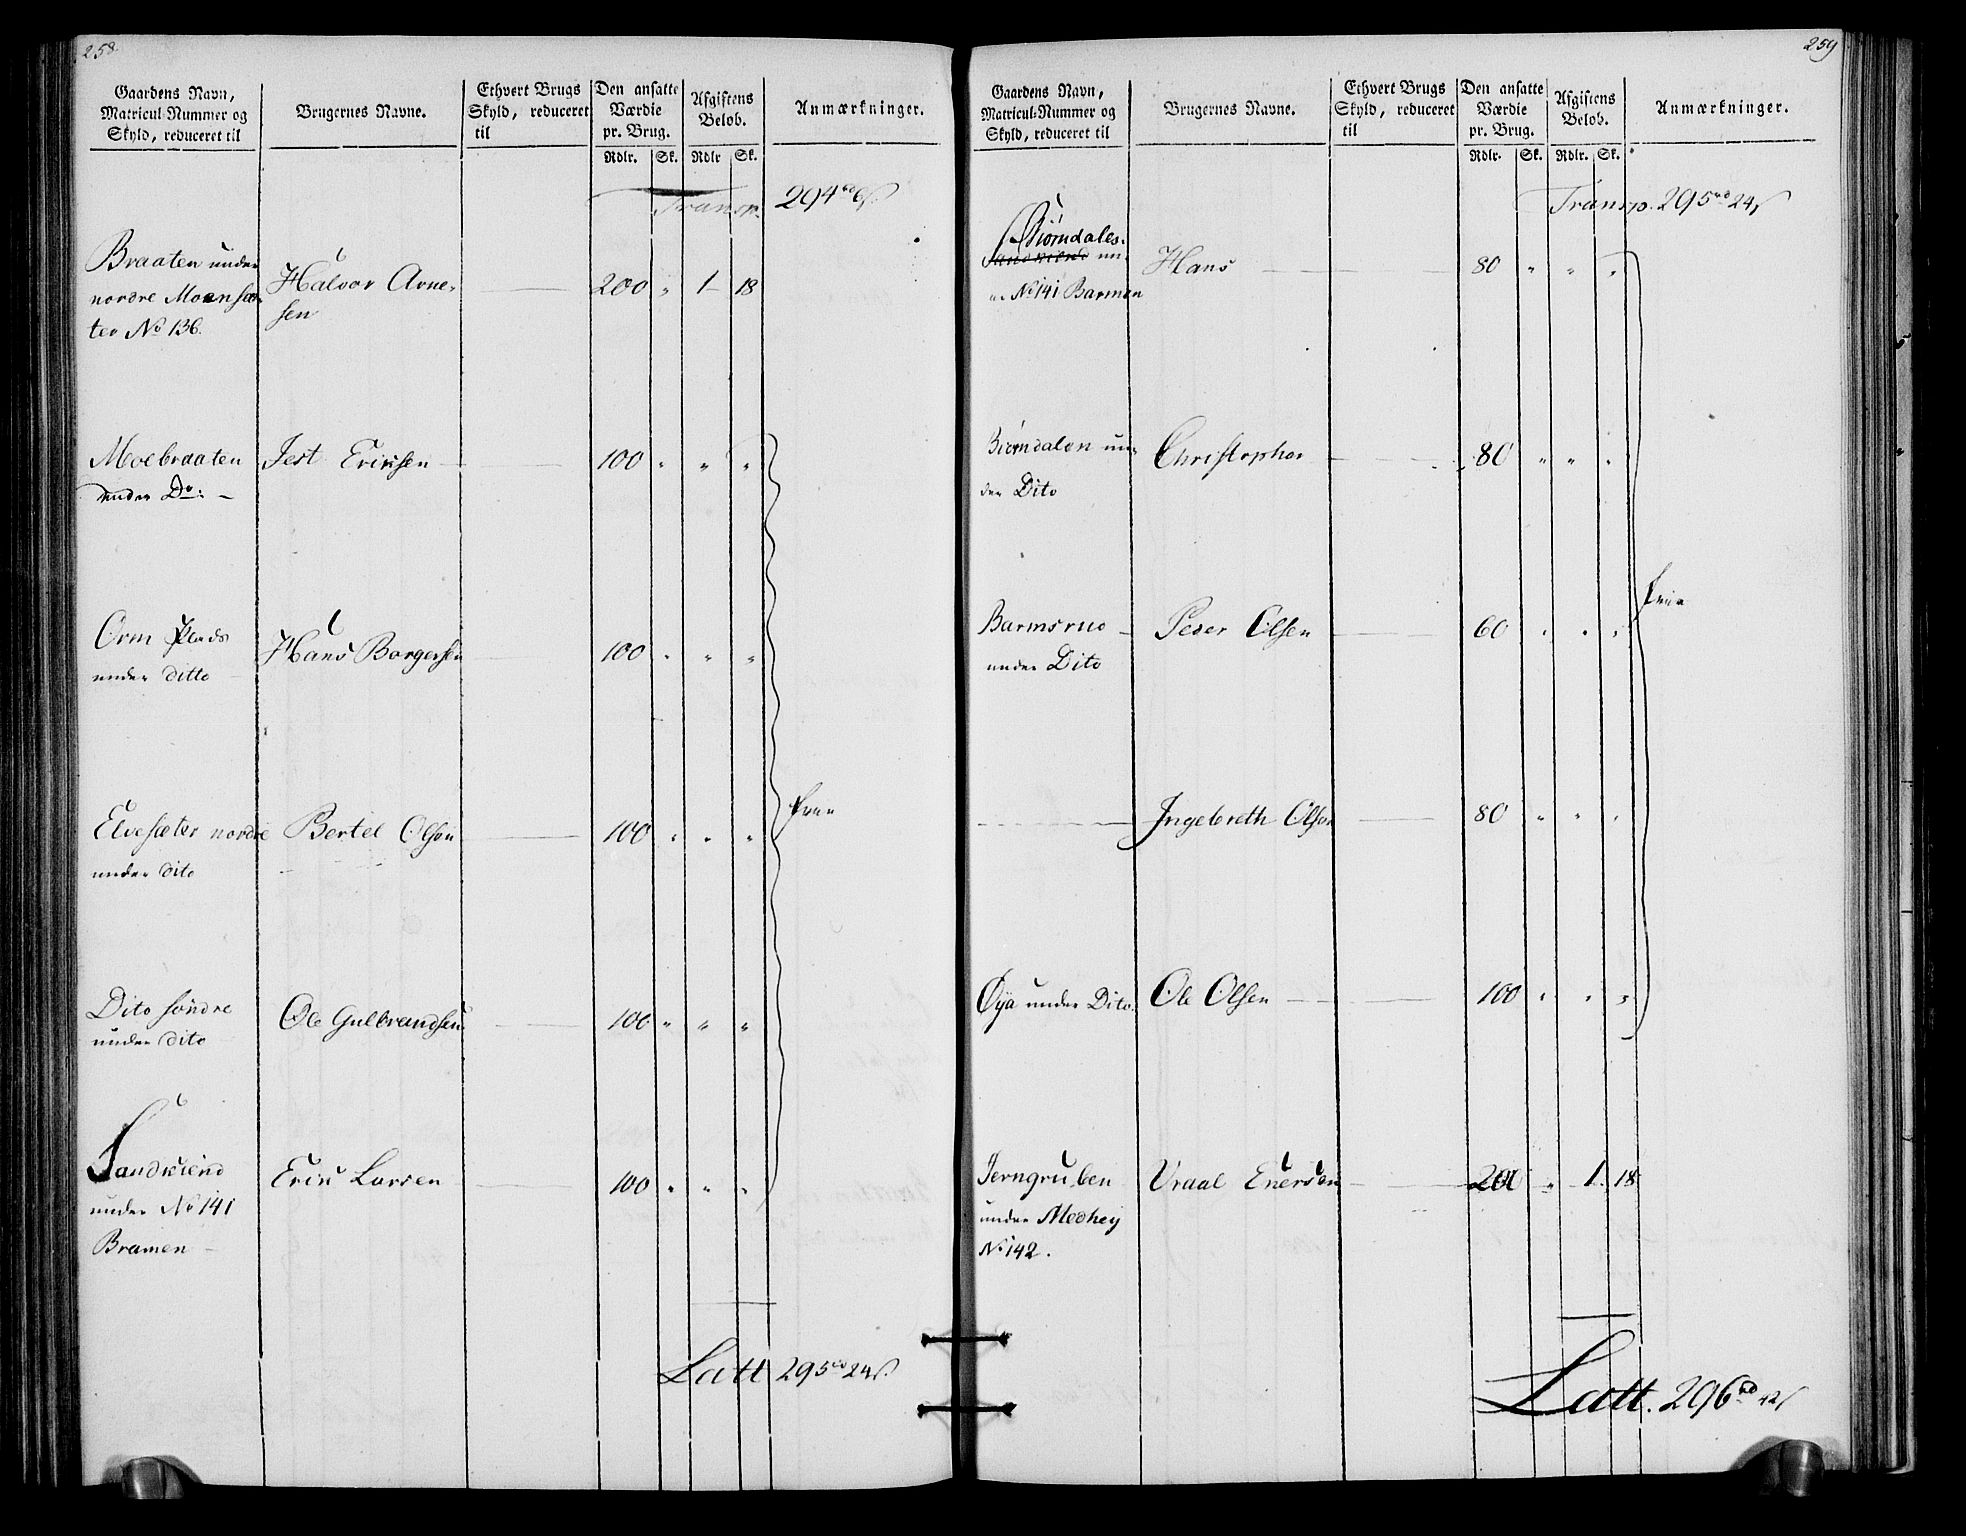 258.
Gaardens Navn, Matricul-Nummer og Skyld, reduceret til
Brugernes Navne.
Ethvert Brugs Skyld, reduceret til
Den ansatte Værdie pr. Brug.
Afgiftens Beløb.
Anmærkninger.
Rdlr. Sk. Rdlr Sk.
Transp. 294 rd 6 s.
Braaten under Halvor Arne- 200 " 1 18
nordre Moensæ- sen
ter No 136.
Moebraaten Jest Ericksen 100 " " "
under Do: –
Orm Plads Hans Borgersen 100 " " "
under ditto
Elvesæter nordre Bertel Olsen 100 " " "
under dito
frie
Dito søndre Ole Gulbrandsen 100 " " "
under dito
Sandviend Erik Larsen 100 " " "
under No 141
Bramen –
Latt 295 rd 24 s.
259
Gaardens Navn, Matricul-Nummer og Skyld, reduceret til
Brugernes Navne.
Ethvert Brugs Skyld, reduceret til
Den ansatte Værdie pr. Brug.
Afgiftens Beløb.
Anmærkninger.
Rdlr. Sk. Rdlr. Sk.
Transp. 295 rd 24 s
Biørndales-
Sandviend un- Hans 80 " " "
No 141 Barmen
Biørndalen un- Christopher 80 " " "
der Dito
frie
Barmsrud – Peder Olsen 60 " " "
under Dito
Ingebreth Olsen 80 " " "
Øya under Dito. Ole Olsen 100 " " "
Jerngruben Vraal Enersen 200 " 1. 18
under Medhey
No 142.
Latt. 296 rd 42 s